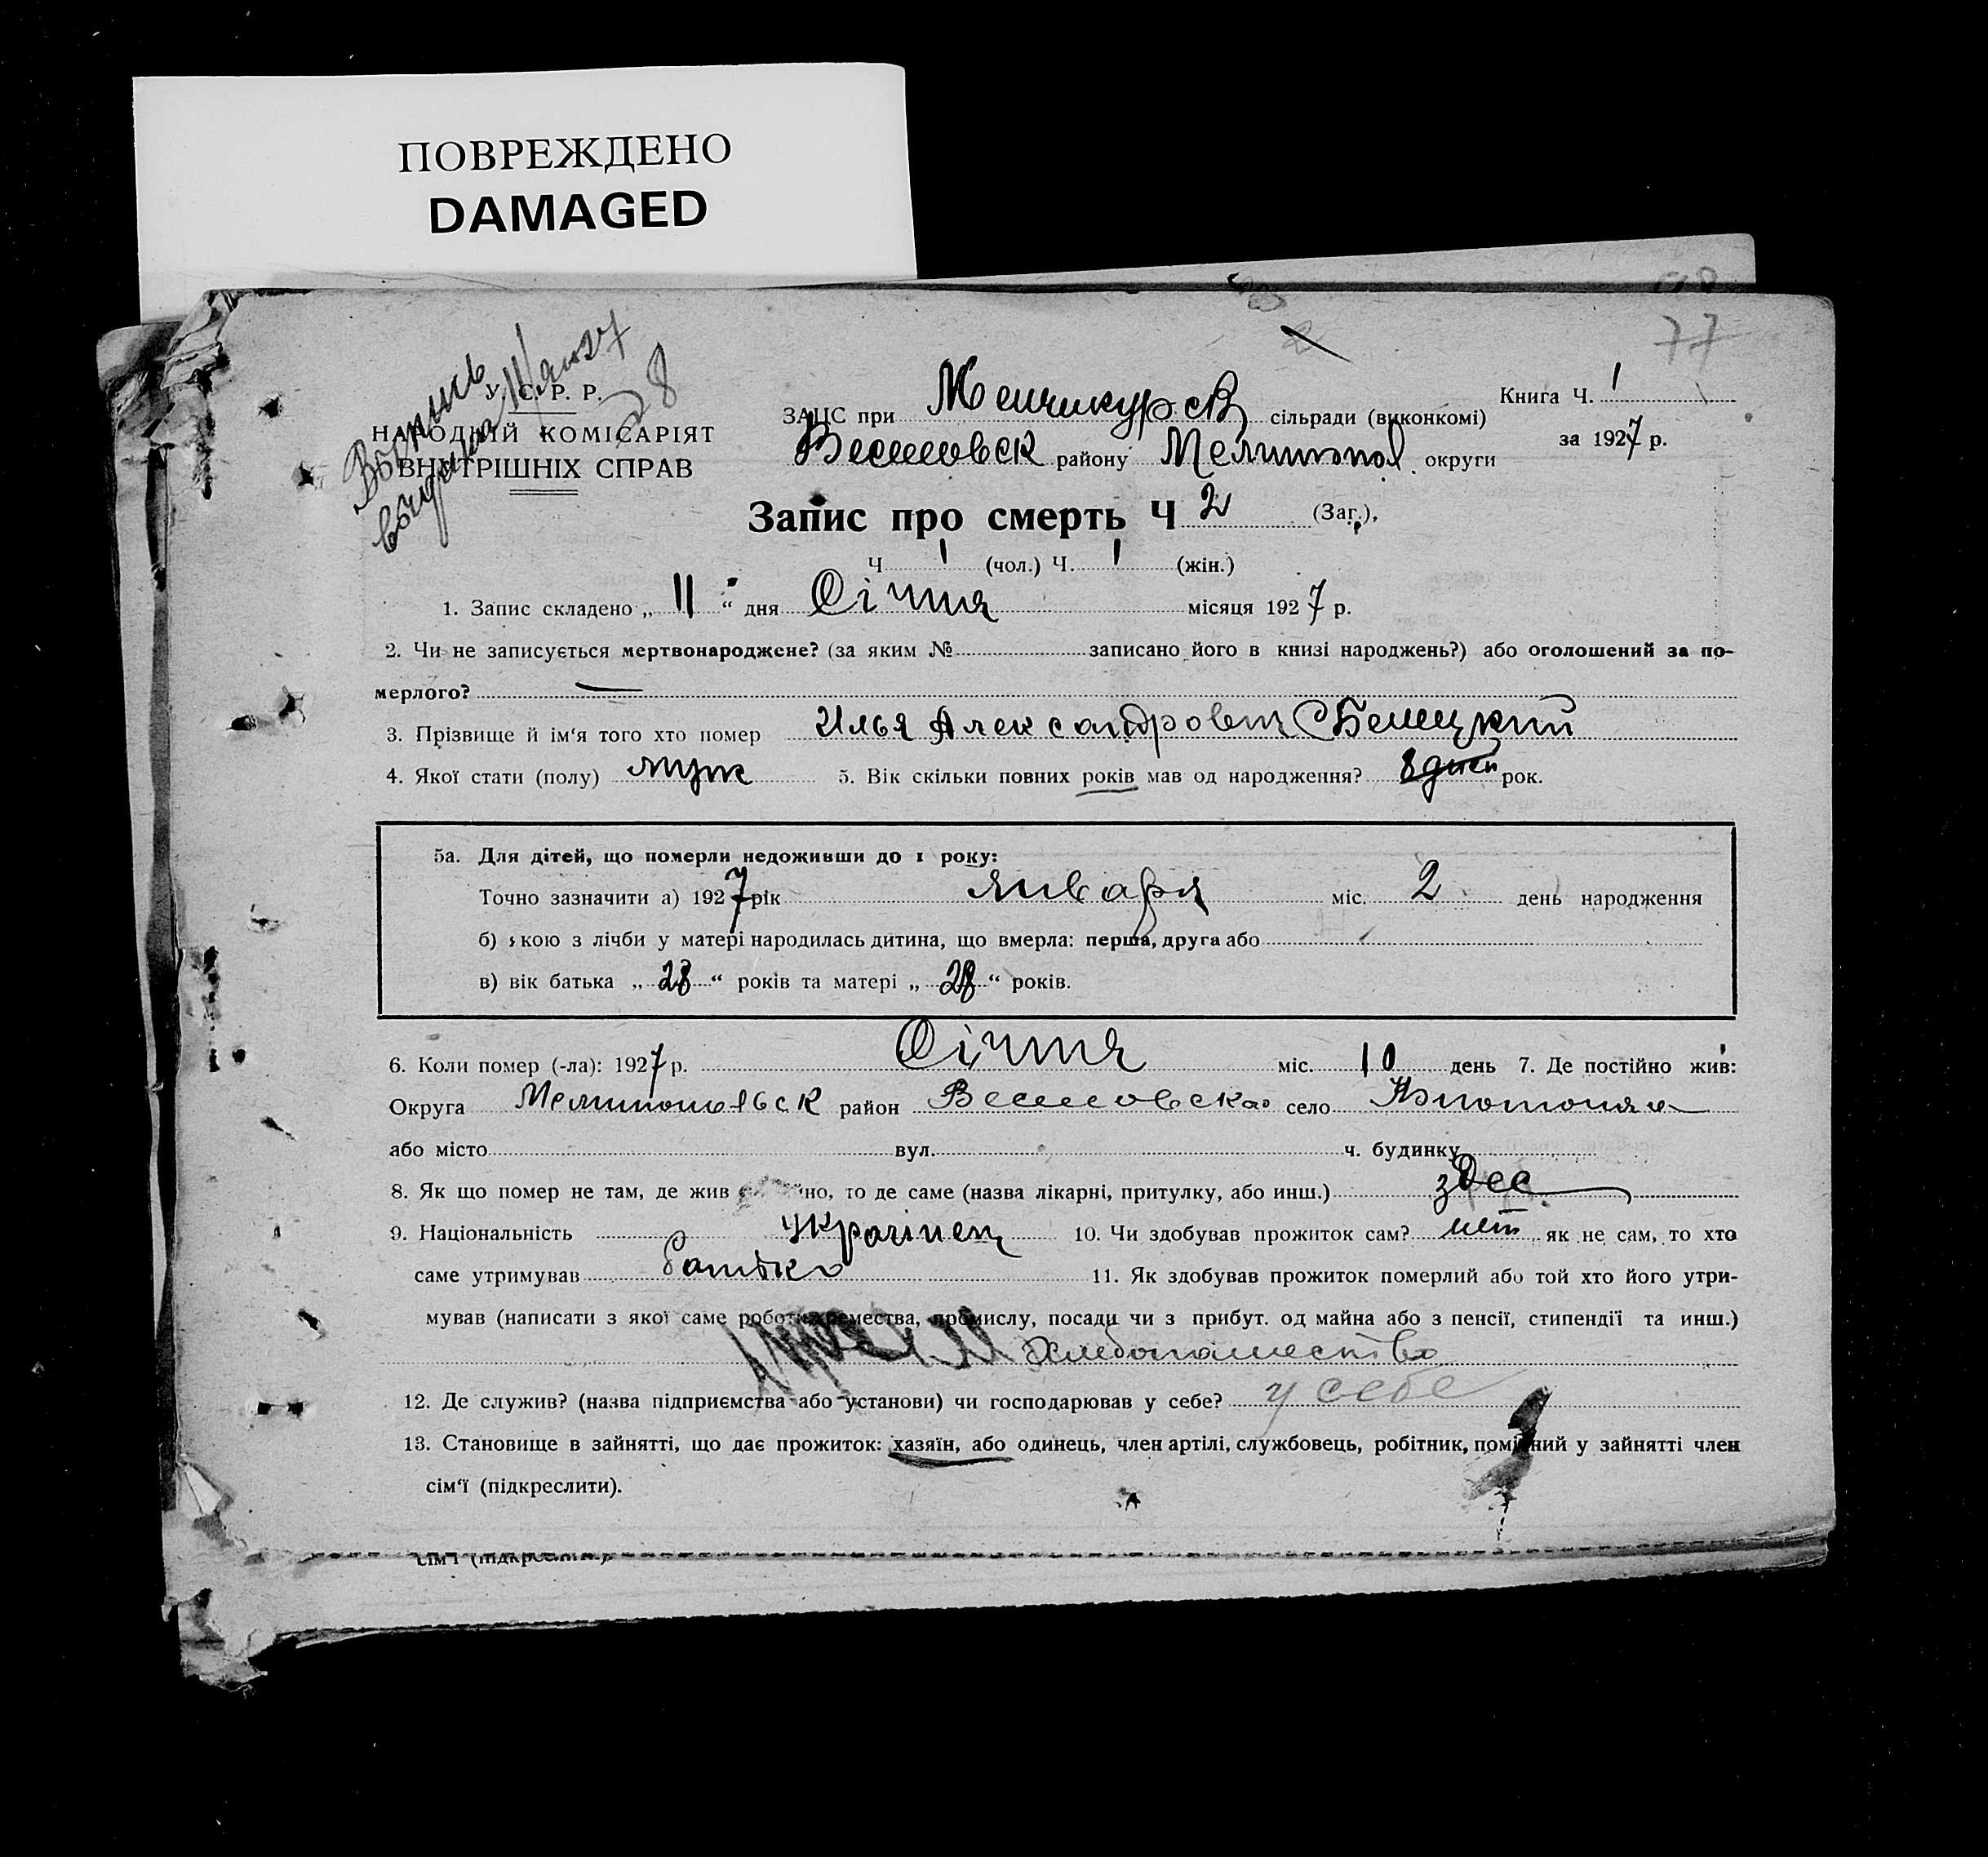 ПОВРЕЖДЕНО
DAMAGED
77
У. С. Р. Р.
НАРОДНІЙ КОМІСАРІЯТ
ВНУТРІШНІХ СПРАВ
ЗАЦС при Менчикурск сільради (виконкомі)
Веселовск району Мелитопол. округи
Книга Ч. 1
за 1927 р.
Запис про смерть Ч 2 (Заг.),
Ч 1 (чол.) Ч. 1 (жін.)
1. Запис складено „ 11 “ дня Січня місяця 1927 р.
2. Чи не записується мертвонароджене? (за яким № записано його в книзі народжень?) або оголошений за по-
мерлого? —
3. Прізвище й ім‘я того хто помер Илья Александрович Белецкий
4. Якої стати (полу) муж 5. Вік скільки повних років мав од народження? 8 дней рок.
5а. Для дітей, що померли недоживши до 1 року:
Точно зазначити а) 1927 рік января міс. 2 день народження
б) якою з лічби у матері народилась дитина, що вмерла: перша, друга або
в) вік батька „ 28 “ років та матері „ 28 “ років.
6. Коли помер (-ла): 1927 р. Січня міс. 10 день 7. Де постійно жив:
Округа Мелитопольск район Веселовска село
або місто вул. ч. будинку
8. Як що помер не там, де жив постійно, то де саме (назва лікарні, притулку, або инш.) здес
9. Національність украінец 10. Чи здобував прожиток сам? нет як не сам, то хто
саме утримував батько 11. Як здобував прожиток померлий або той хто його утри-
мував (написати з якої саме роботи, ремества, промислу, посади чи з прибут. од майна або з пенсії, стипендії та инш.)
Хлебопашество
12. Де служив? (назва підприємства або установи) чи господарював у себе? у себе
13. Становище в зайнятті, що дає прожиток: хазяїн, або одинець, член артілі, службовець, робітник, помічний у зайнятті член
сім‘ї (підкреслити).
сім‘ї (підкреслити).